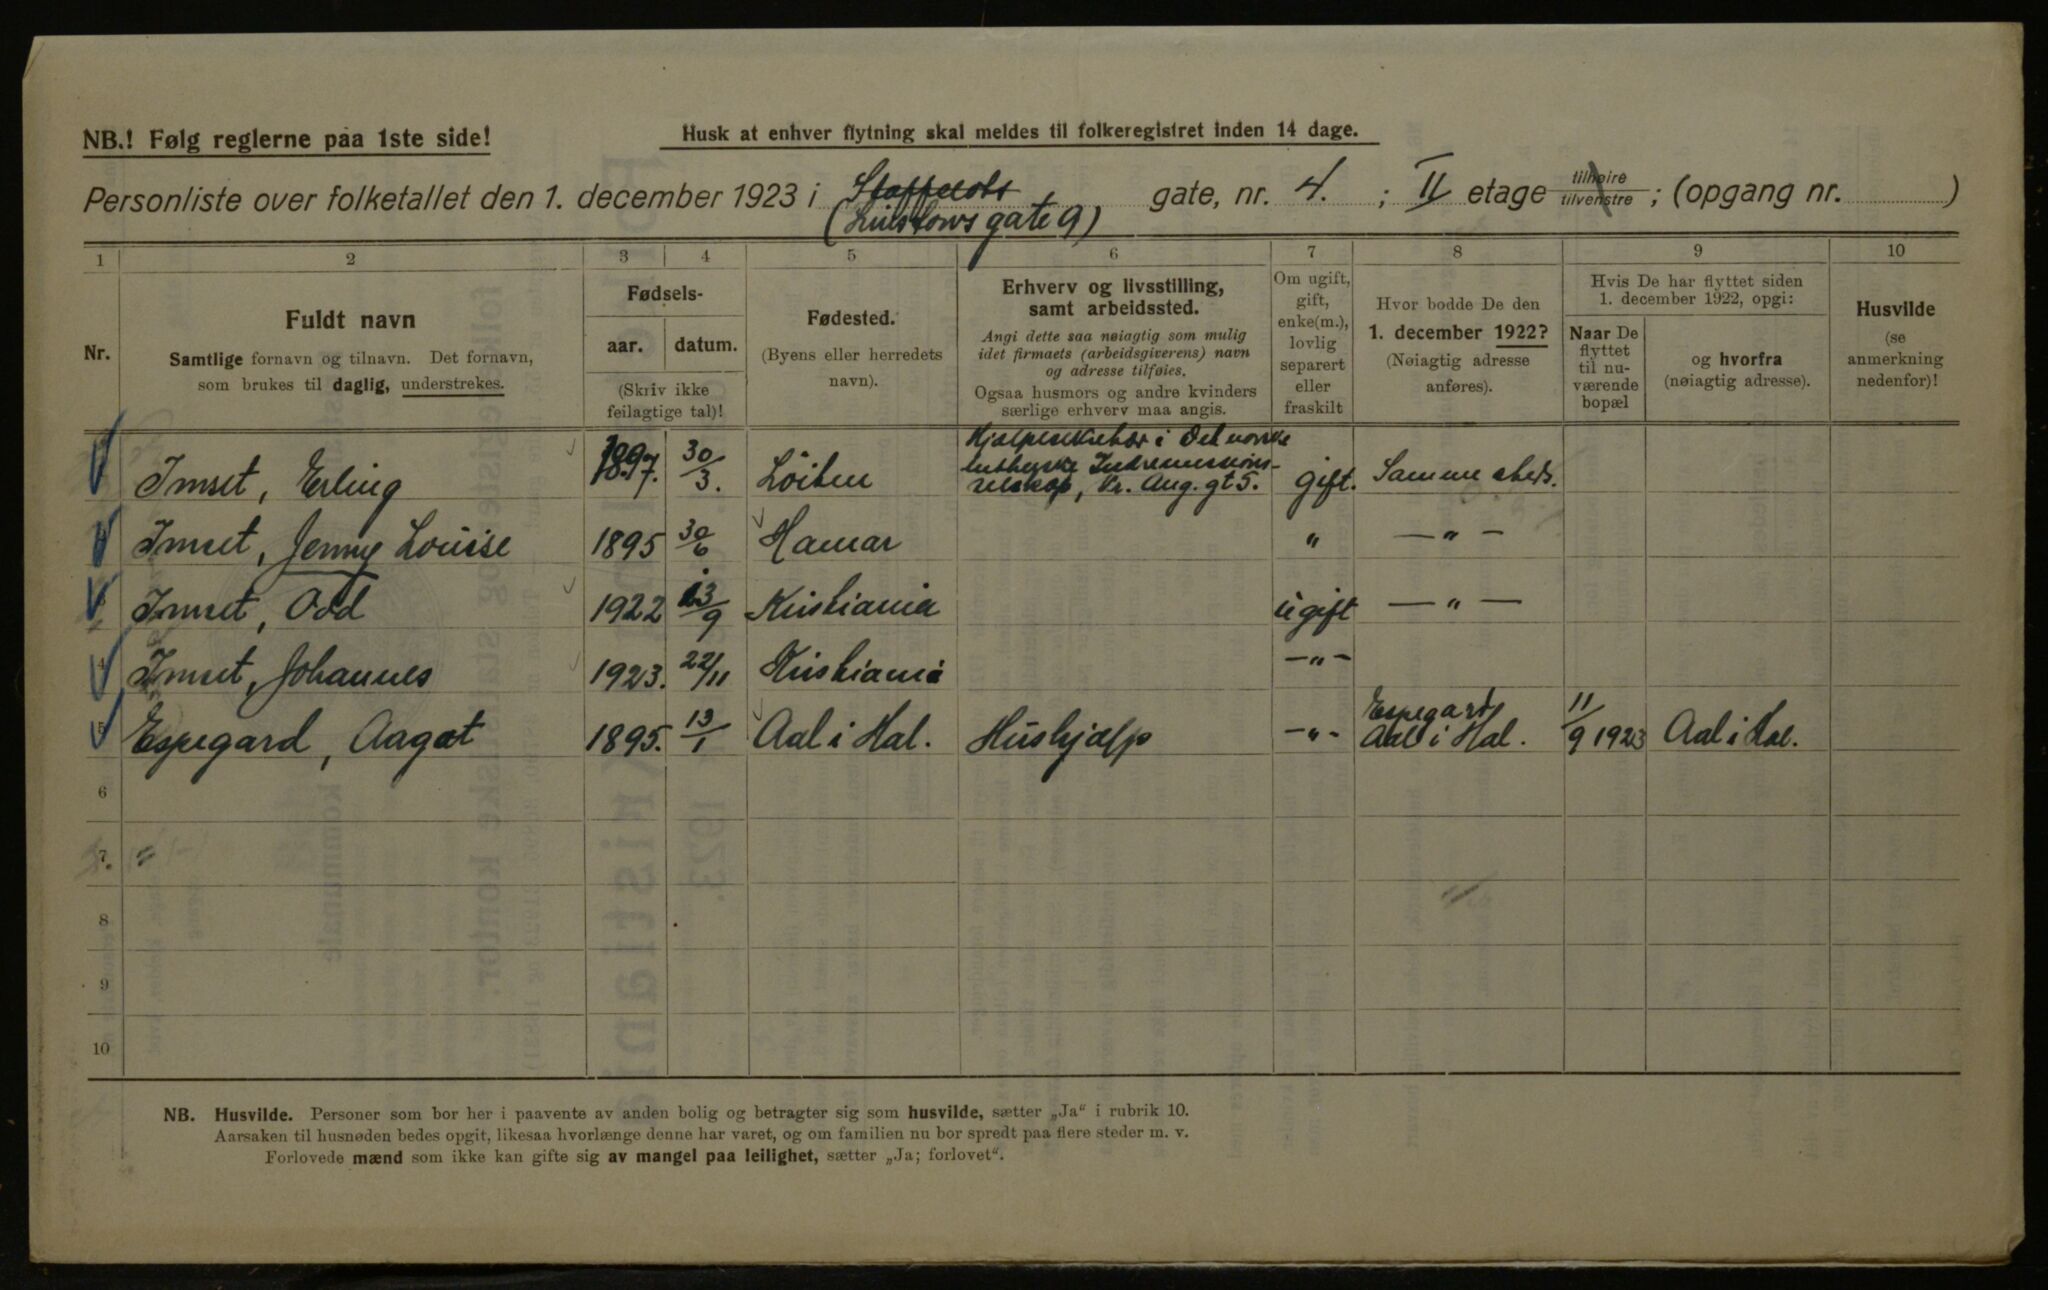 NB.! Følg reglerne paa 1ste side!
Husk at enhver flytning skal meldes til folkeregistret inden 14 dage.
Personliste over folketallet den 1. december 1923 i Staffeldts gate, nr. 4. ; II etage tilhøire tilvenstre ; (opgang nr. )
(Linstows gate 9)
1 2 3 4 5 6 7 8 9 10
Nr.
Fuldt navn
Samtlige fornavn og tilnavn. Det fornavn,
som brukes til daglig, understrekes.
Fødsels-
aar. datum.
(Skriv ikke
feilagtige tal)!
Fødested.
(Byens eller herredets
navn).
Erhverv og livsstilling,
samt arbeidssted.
Angi dette saa nøiagtig som mulig
idet firmaets (arbeidsgiverens) navn
og adresse tilføies.
Ogsaa husmors og andre kvinders
særlige erhverv maa angis.
Om ugift,
gift,
enke(m.),
lovlig
separert
eller
fraskilt
Hvor bodde De den
1. december 1922?
(Nøiagtig adresse
anføres).
Hvis De har flyttet siden
1. december 1922, opgi:
Naar De
flyttet
til nu-
værende
bopæl
og hvorfra
(nøiagtig adresse).
Husvilde
(se
anmerkning
nedenfor)!
Hjælpesekretær i Det norske
lutherske Indremissions-
Imset, Erling 1897. 30/3. Löiten selskap, Kr. Aug. gt 5. gift. Samme steds.
Imset, Jenny Louise 1895 30/6 Hamar " — " —
Imset, Odd 1922 13/9 Kristiania ugift — " —
4 Imset, Johannes 1923. 22/11 Kristiania — " —
5 Espegard, Aagot 1895. 13/1 Aal i Hal. Hushjælp — " — Espegard, Aal i Hal. 11/9 1923 Aal i Hal.
6
7 "
8
9
10
NB. Husvilde. Personer som bor her i paavente av anden bolig og betragter sig som husvilde, sætter „Ja“ i rubrik 10.
Aarsaken til husnøden bedes opgit, likesaa hvorlænge denne har varet, og om familien nu bor spredt paa flere steder m. v.
Forlovede mænd som ikke kan gifte sig av mangel paa leilighet, sætter „Ja; forlovet“.